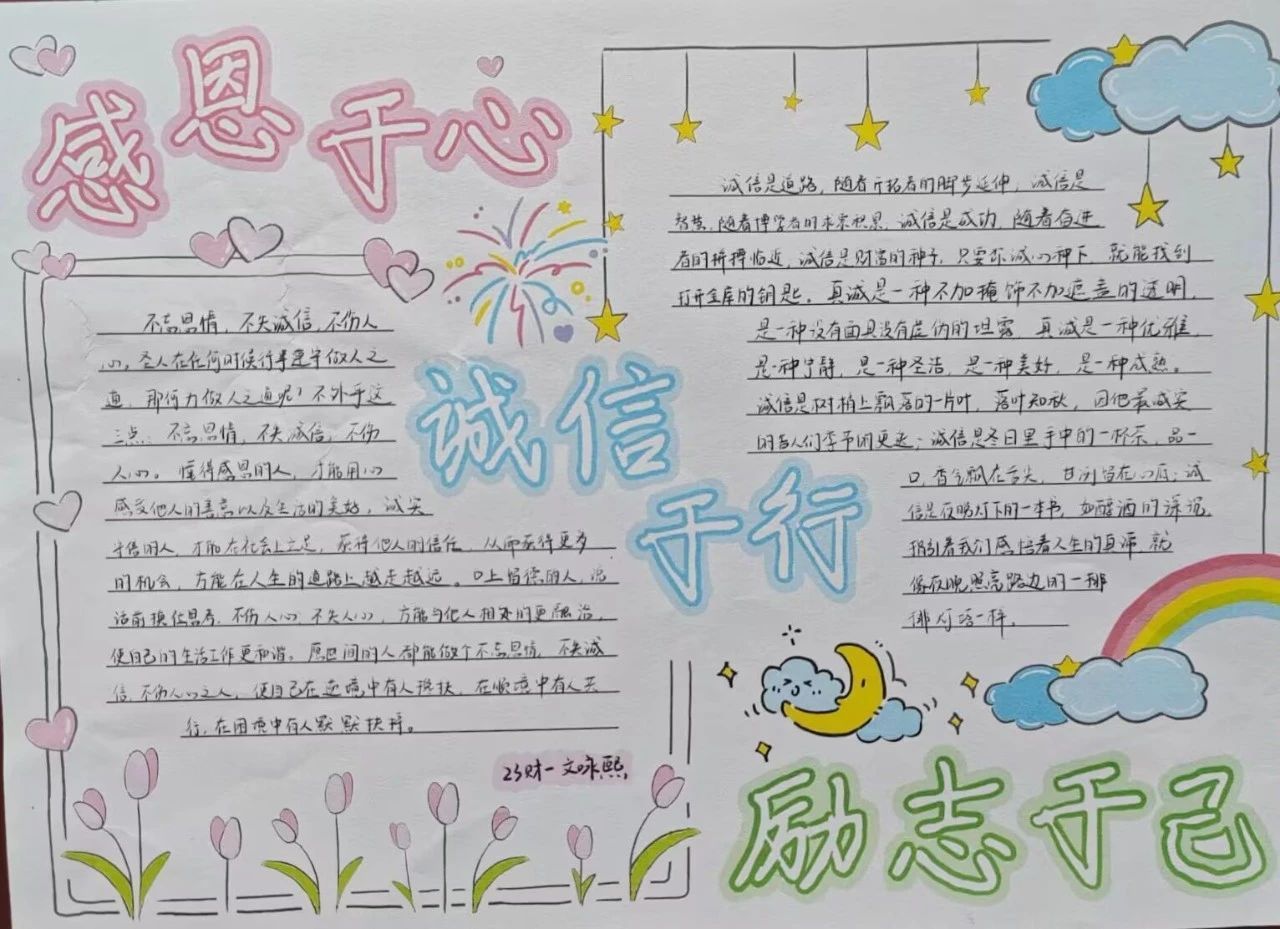 感恩于心
不忘恩情,不失诚信,不伤人
心。圣人在任何时候行事遵守做人之
道,那何为做人之道呢?不外乎这
三点:不忘恩情,不失诚信,不伤
人心。懂得感恩的人,才能用心
感受他人的善意以及生活的美好,诚实
守信的人,才能在社会上立足,获得他人的信任,从而获得更多
的机会,方能在人生的道路上越走越远。口上留德的人,说
话前换位思考,不伤人心,不失人心,方能与他人相处的更融洽,
使自己的生活工作更和谐。愿世间的人都能做个不忘恩情,不失诚
信,不伤人心之人,使自己在逆境中有人搀扶,在顺境中有人共
行,在困境中有人默默扶持。
23财一 文咏熙
诚信于行
诚信是道路,随着开拓者的脚步延伸,诚信是
智慧,随着博学者的求索积累,诚信是成功,随着奋进
者的拼搏临近,诚信是财富的种子,只要你诚心种下,就能找到
打开金库的钥匙。真诚是一种不加掩饰不加遮盖的透明,
是一种没有面具没有虚伪的坦露,真诚是一种优雅,
是一种宁静,是一种圣洁,是一种美好,是一种成熟。
诚信是树梢上飘落的一片叶,落叶知秋,因他最诚实
的告人们季节的更迭;诚信是冬日里手中的一杯茶,品一
口,香气飘在舌尖,甘冽留在心底;诚
信是夜晚灯下的一本书,如醇酒的深沉,
指引着我们感悟着人生的真谛,就
像夜晚照亮路边的一排
排灯塔一样.
励志于己